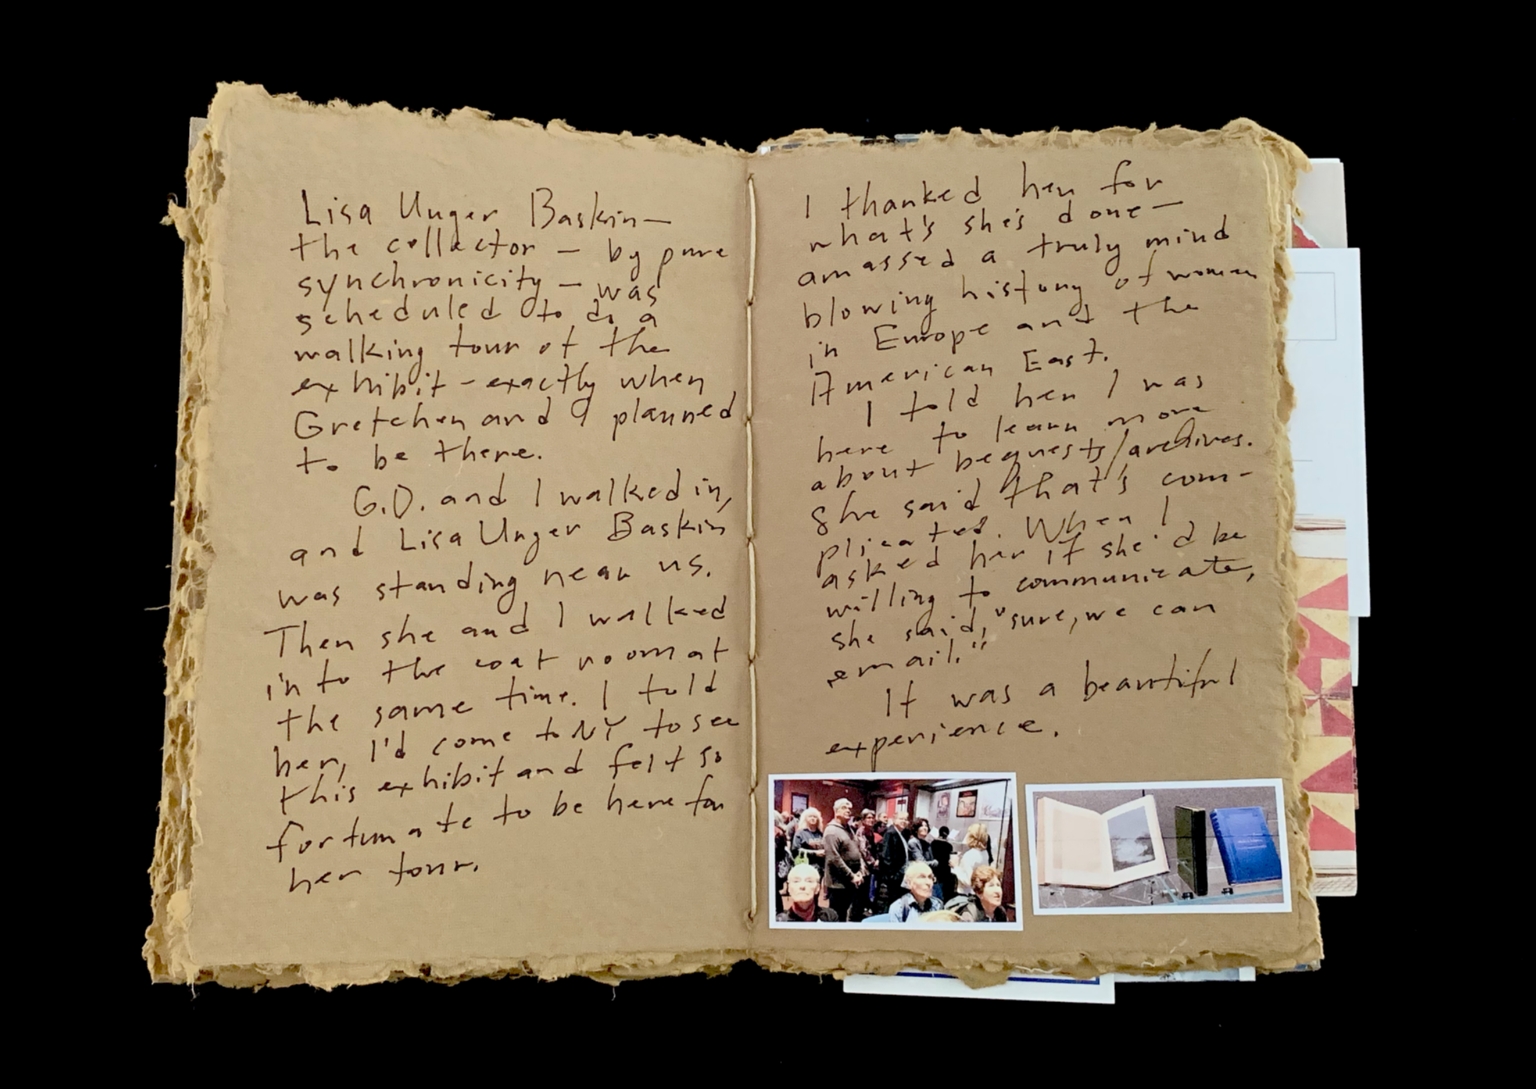 Lisa Unger Baskin—
the collector — by pure
synchronicity — was
scheduled to do a
walking tour of the
exhibit - exactly when
Gretchen and I planned
to be there.
G.D. and I walked in,
and Lisa Unger Baskin
was standing near us.
Then she and I walked
into the coat room at
the same time. I told
her, I'd come to NY to see
this exhibit and felt so
fortunate to be here for
her tour.
I thanked her for
what's she's done—
amassed a truly mind
blowing history of women
in Europe and the
American East.
I told her I was
here to learn more
about bequests/archives.
She said that's com-
plicated. When I
asked her if she'd be
willing to communicate,
she said, "sure, we can
email."
It was a beautiful
experience.